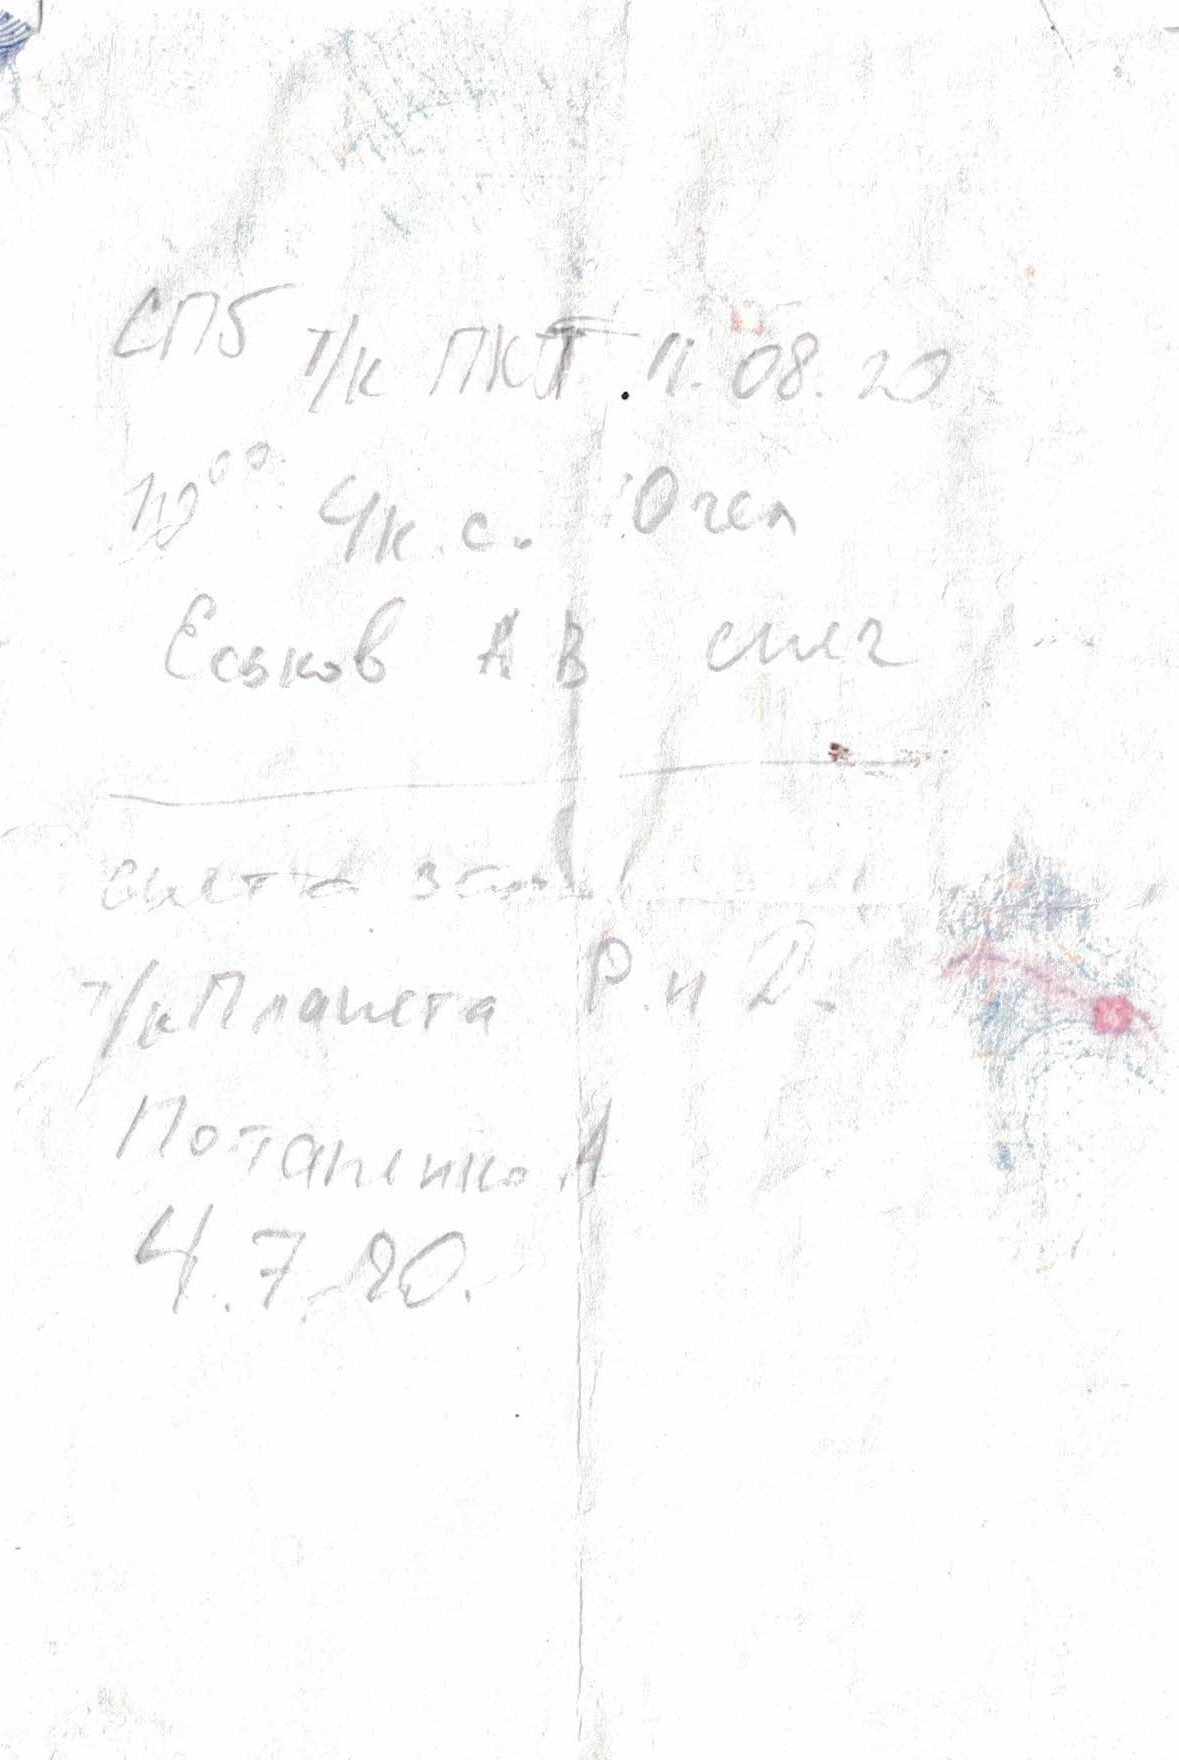 СПб т/к ПКТ 11.08.20
10⁰⁰ 4 к.с. 10 чел
Еськов А В снег
снята зап
т/к Планета Р. н Д.
Потапенко А
4.7.20.